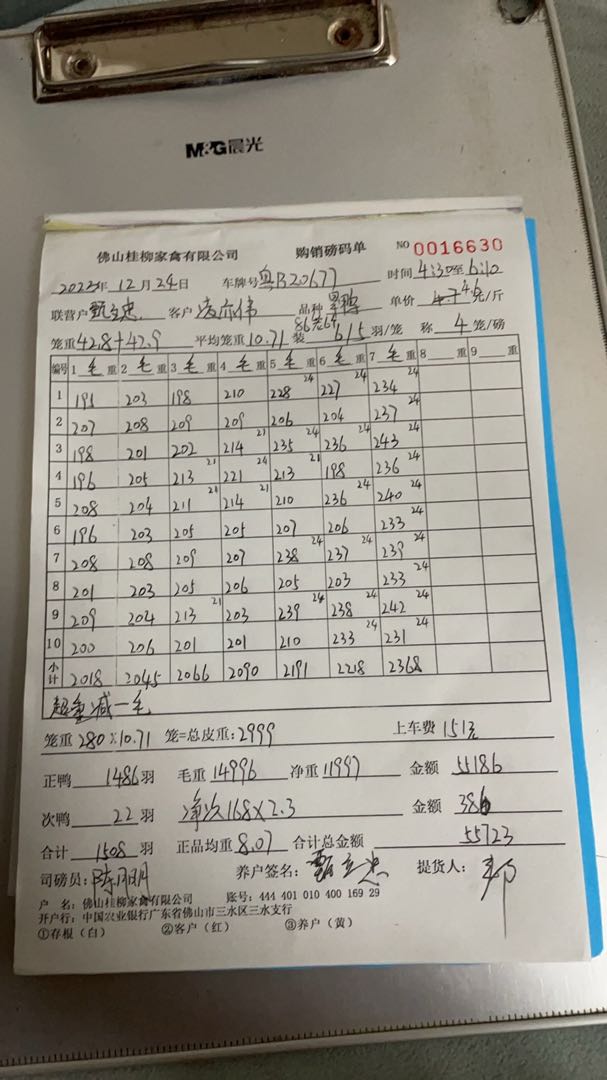 M&G晨光
佛山桂柳家禽有限公司 购销磅码单 NO 0016630
2022年 12月 24日 车牌号 粤B20677 时间 4:30至6:10
联营户 甄立忠 客户 品种 单价 4.7 4.6元/斤
笼重 42.8+42.9 平均笼重 10.71 装 6/5 羽/笼 称 4 笼/磅
编号 1 毛 重 2 毛 重 3 毛 重 4 毛 重 5 毛 重 6 毛 重 7 毛 重 8 重 9 重
1 191 203 198 210 228 24 227 24 234 24
2 207 208 209 209 206 204 237 24
3 198 201 202 214 21 235 24 236 24 243 24
4 196 205 213 21 221 24 213 21 198 236 24
5 208 204 211 21 214 21 210 236 24 240 24
6 196 203 205 205 207 206 233 24
7 208 208 209 207 238 24 237 24 239 24
8 201 203 205 206 205 203 233 24
9 209 204 213 21 203 239 24 238 24 242 24
10 200 206 201 201 210 233 24 231 24
小计 2018 2045 2066 2090 2191 2218 2368
超重减一毛
笼重 280 X10.71 笼=总皮重: 2999 上车费 151元
正鸭 1486 羽 毛重 14996 净重 11997 金额 55186
次鸭 22 羽 净次168X2.3 金额 386
合计 1508 羽 正品均重 8.07 合计总金额 55723
司磅员: 陈朋朋 养户签名: 甄立忠 提货人:
户 名: 佛山桂柳家禽有限公司 账号: 444 401 010 400 169 29
开户行: 中国农业银行广东省佛山市三水区三水支行
①存根（白） ②客户（红） ③养户（黄）